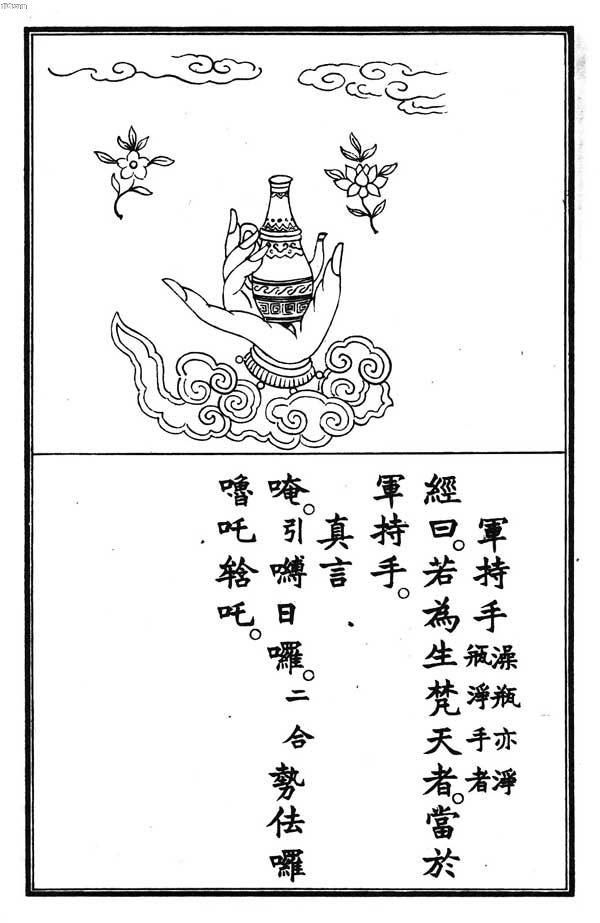 軍持手 澡瓶亦淨
瓶淨手者
經曰。若為生梵天者。當於
軍持手。
真言
唵。引嚩日囉。二合勢佉囉
嚕吒𤚥吒。